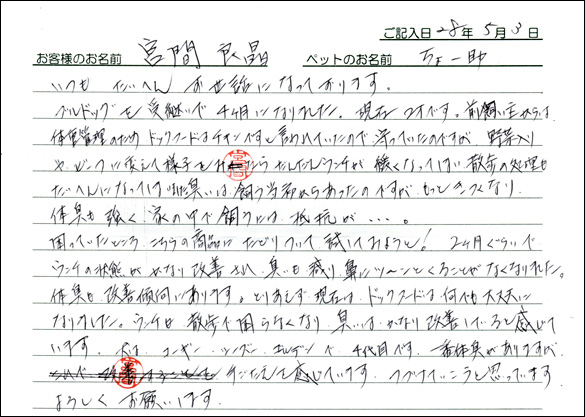 ご記入日 28年 5月 3日
お客様のお名前 宮間 良晶 ペットのお名前 ちょ一助
いつも たいへん お世話になっております。
ブルドッグを 受継いで 4ヶ月になりました。現在 2才です。前飼い主からは
体重管理のため ドックフードはチキンですと言われていたので 守っていたのですが 野菜入り
や、ビーフに変えて様子を だんだんウンチが 緩くなって 散歩の処理も
たいへんになって 臭いは飼う当初からあったのですが、もっときつくなり
体臭も 強く 家の中で飼うには 抵抗が・・・。
困っていたところ、こちらの商品にたどりついて 試してみようと! 2ヶ月ぐらいで
ウンチの状態が かなり改善され、臭いも減り、鼻にツ〜ンとくることがなくなりました。
体臭も改善傾向にあります。とりあえず現在は、ドックフードは何でも大丈夫に
なりました。ウンチも 散歩で困らなくなり、臭いは、かなり改善していると感じて
います。犬は コーギー で 4代目です。一番体臭がありますが
手ごたえを感じています。つづけていこうと思ってます
よろしく お願いします。
宮間